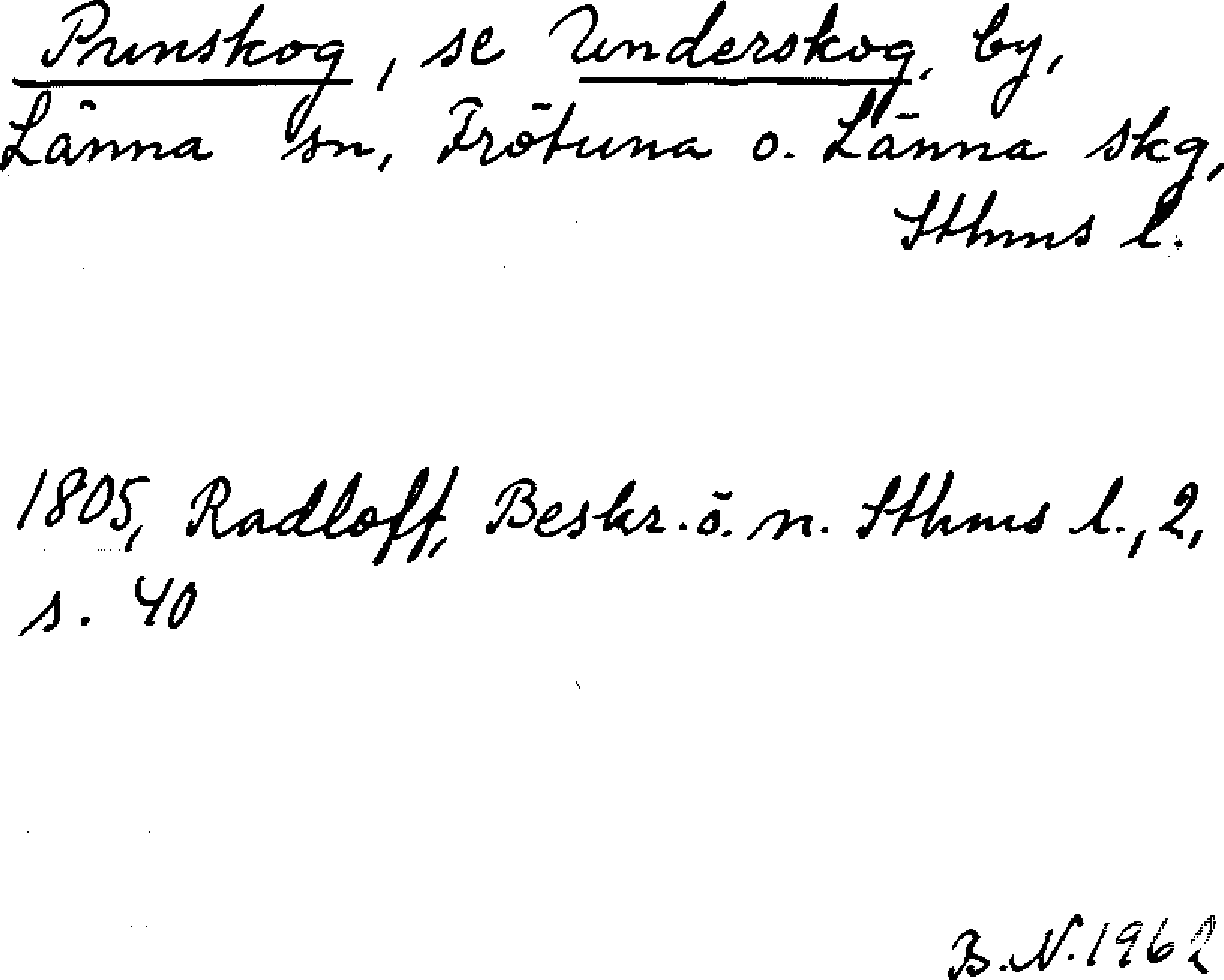 Punskog, se Underskog, by,
Länna sn, Frötuna o. Länna skg,
Sthms l.
1805, Radloff, Beskr. ö. n. Sthms l., 2,
s. 40
B.N. 1962